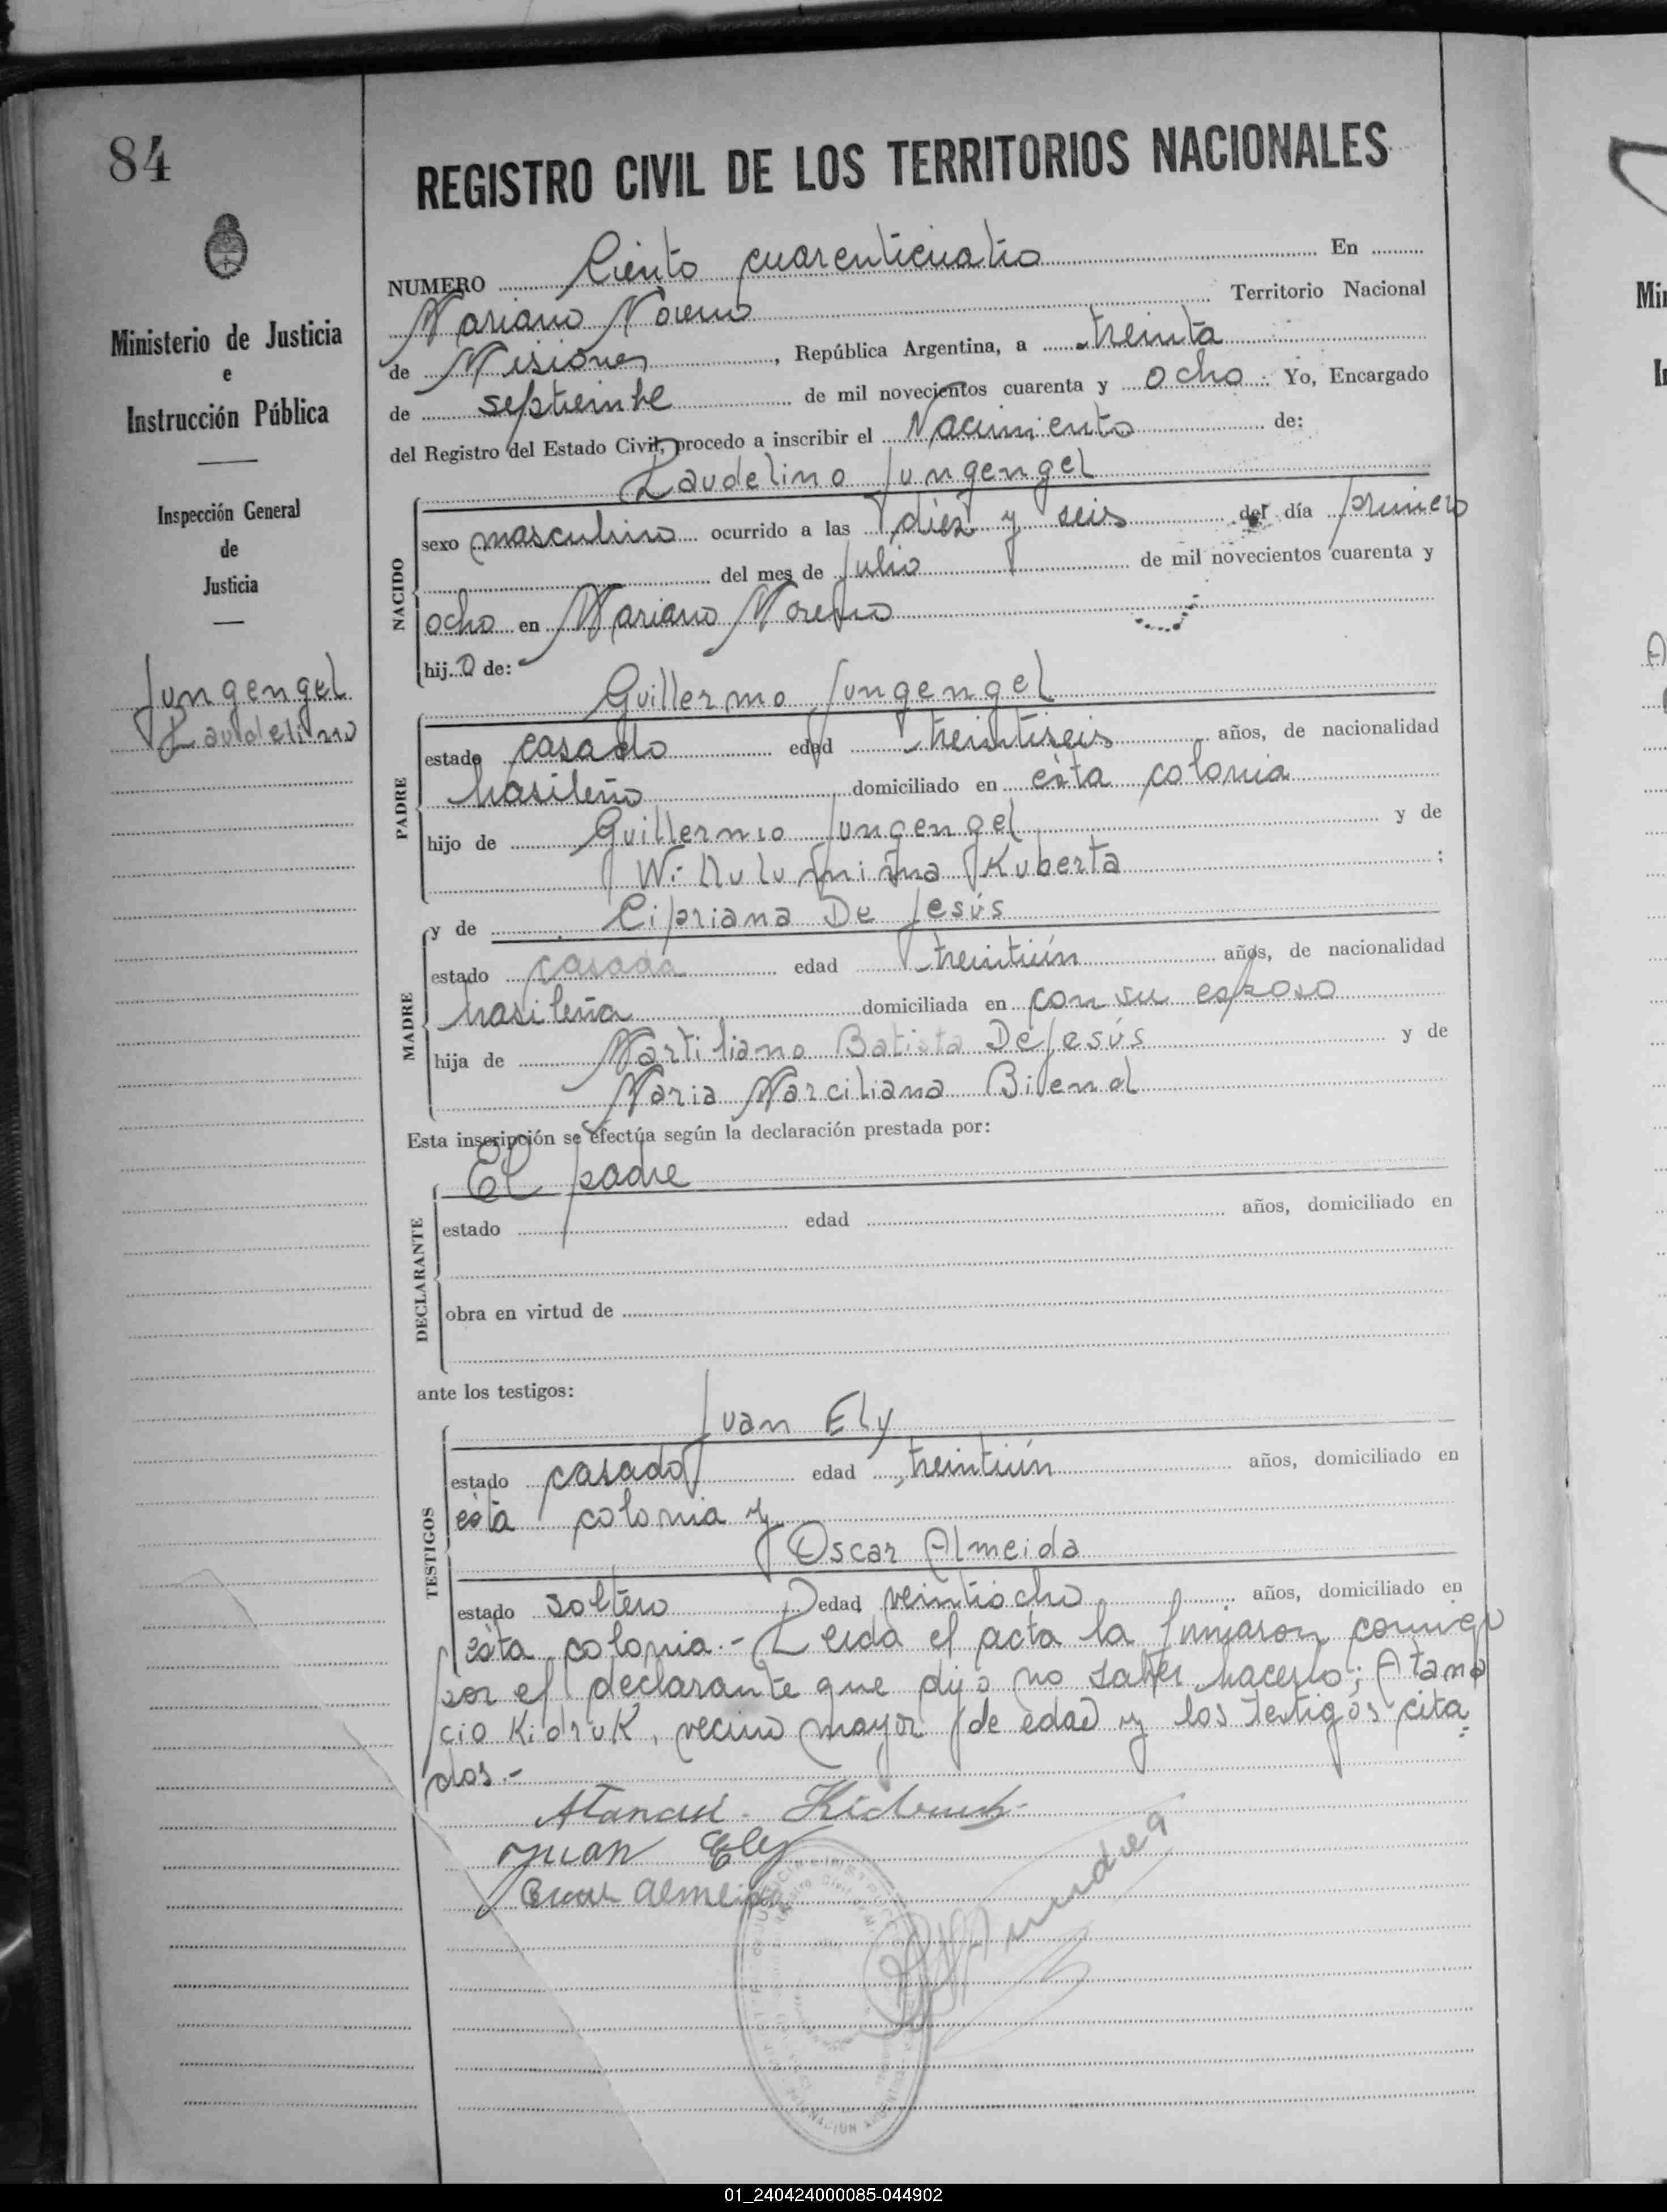 84
REGISTRO CIVIL DE LOS TERRITORIOS NACIONALES
Ministerio de Justicia
e
Instrucción Pública
Inspección General
de
Justicia
Jungengel
Laudelino
NUMERO Ciento cuarenticuatro En
Mariano Moreno Territorio Nacional
de Misiones, República Argentina, a treinta
de septiembre de mil novecientos cuarenta y ocho. Yo, Encargado
del Registro del Estado Civil, procedo a inscribir el Nacimiento de:
Laudelino Jungengel
NACIDO
sexo masculino ocurrido a las diez y seis del día primero
del mes de Julio de mil novecientos cuarenta y
ocho en Mariano Moreno
hijo de:
Guillermo Jungengel
PADRE
estado casado edad treintiseis años, de nacionalidad
brasileño domiciliado en ésta colonia
hijo de Guillermo Jungengel y de
Kuberta ;
y de Cipriana De Jesús
MADRE
estado casada edad treintiún años, de nacionalidad
brasileña domiciliada en con su esposo
hija de Martiliano Batista De Jesús y de
Maria Marciliana
Esta inscripción se efectúa según la declaración prestada por:
El padre
DECLARANTE
estado edad años, domiciliado en
obra en virtud de
ante los testigos:
Juan Ely
TESTIGOS
estado casado edad treintiún años, domiciliado en
ésta colonia y
Oscar Almeida
estado soltero edad veintiocho años, domiciliado en
ésta colonia.- Leida el acta la firmaron conmigo
por el declarante que dijo no saber hacerlo; Atana
cio Kidruk, vecino mayor de edad y los testigos cita=
dos.-
Juan Ely
Almeida
01_240424000085-044902